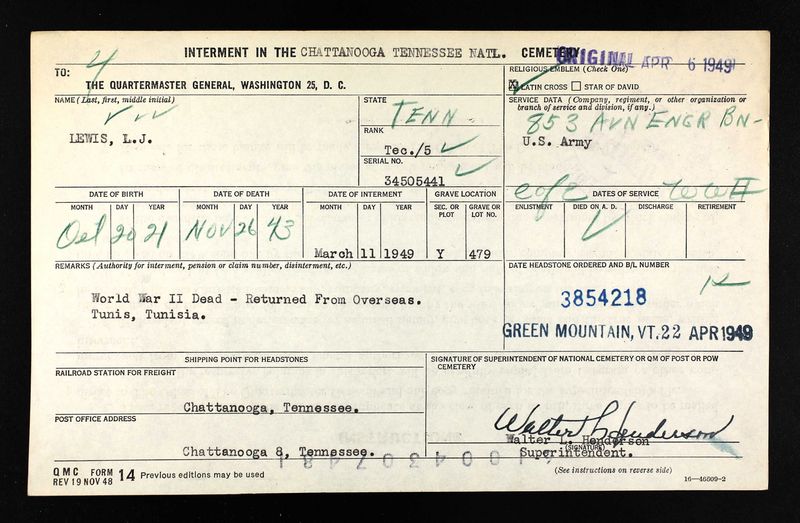 INTERMENT IN THE CHATTANOOGA TENNESSEE NATL. CEMETERY
ORIGINAL APR 6 1949
4
TO:
THE QUARTERMASTER GENERAL, WASHINGTON 25, D. C.
RELIGIOUS EMBLEM (Check One)
X LATIN CROSS STAR OF DAVID
NAME (Last, first, middle initial)
LEWIS, L.J.
STATE
TENN
RANK
Tec./5
SERIAL NO.
34505441
SERVICE DATA (Company, regiment, or other organization or
branch of service and division, if any.)
853 AVN ENGR BN-
U.S. Army
DATE OF BIRTH
MONTH DAY YEAR
Oct 20 21
DATE OF DEATH
MONTH DAY YEAR
NOV 26 43
DATE OF INTERMENT
MONTH DAY YEAR
March 11 1949
GRAVE LOCATION
SEC. OR PLOT GRAVE OR LOT NO.
Y 479
DATES OF SERVICE
WW II
ENLISTMENT DIED ON A. D. DISCHARGE RETIREMENT
REMARKS (Authority for interment, pension or claim number, disinterment, etc.)
World War II Dead - Returned From Overseas.
Tunis, Tunisia.
DATE HEADSTONE ORDERED AND B/L NUMBER
3854218
GREEN MOUNTAIN, VT. 22 APR 1949
SHIPPING POINT FOR HEADSTONES
RAILROAD STATION FOR FREIGHT
Chattanooga, Tennessee.
POST OFFICE ADDRESS
Chattanooga 8, Tennessee.
SIGNATURE OF SUPERINTENDENT OF NATIONAL CEMETERY OR QM OF POST OR POW
CEMETERY
Walter L Henderson
Walter L. Henderson
(SIGNATURE)
Superintendent.
(See instructions on reverse side)
QMC FORM
REV 19 NOV 48 14 Previous editions may be used
16—46609-2